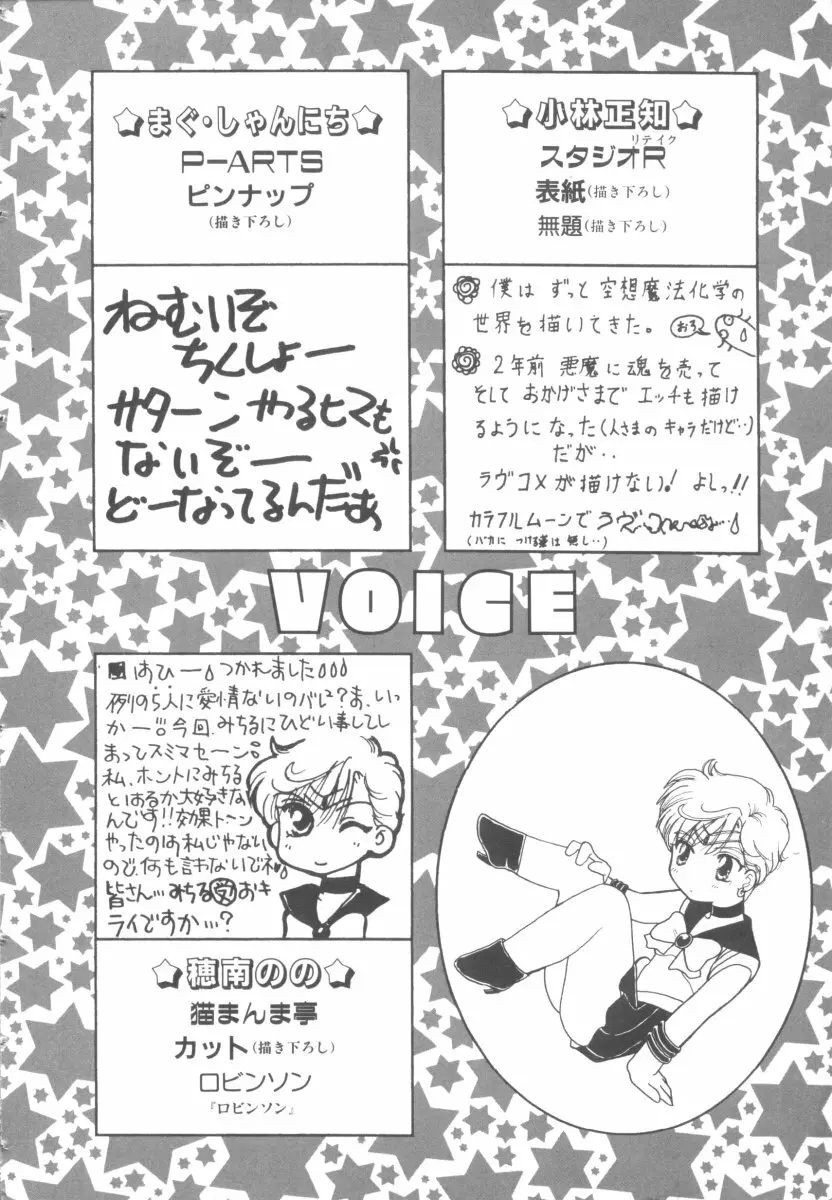 まぐ・しゃんにち
P-ARTS
ピンナップ
(描き下ろし)
ねむいぞ
ちくしょー
サターンやるヒマも
ないぞー
どーなってるんだぁ
小林正知
リテイク
スタジオR
表紙(描き下ろし)
無題(描き下ろし)
僕は ずっと 空想魔法化学の
世界を描いてきた。
2年前 悪魔に魂を売って
そして おかげさまで エッチも描け
るように なった(人さまの キャラだけど‥)
だが‥
ラヴコメが描けない! よしっ!!
カラフルムーンで ラヴ
(バカに つける薬は 無し‥)
VOICE
はひー つかれました
例の5人に愛情ないのバレバレ?ま、いっ
かー!!今回、みちるにひどい事してし
まってスミマセーン
私、ホントにみちる
とはるか大好きな
んです!!効果トーン
やったのは私じゃない
ので、何も言わないでネ
皆さん…みちる受おキ
ライですか…?
穂南のの
猫まんま亭
カット(描き下ろし)
ロビンソン
『ロビンソン』